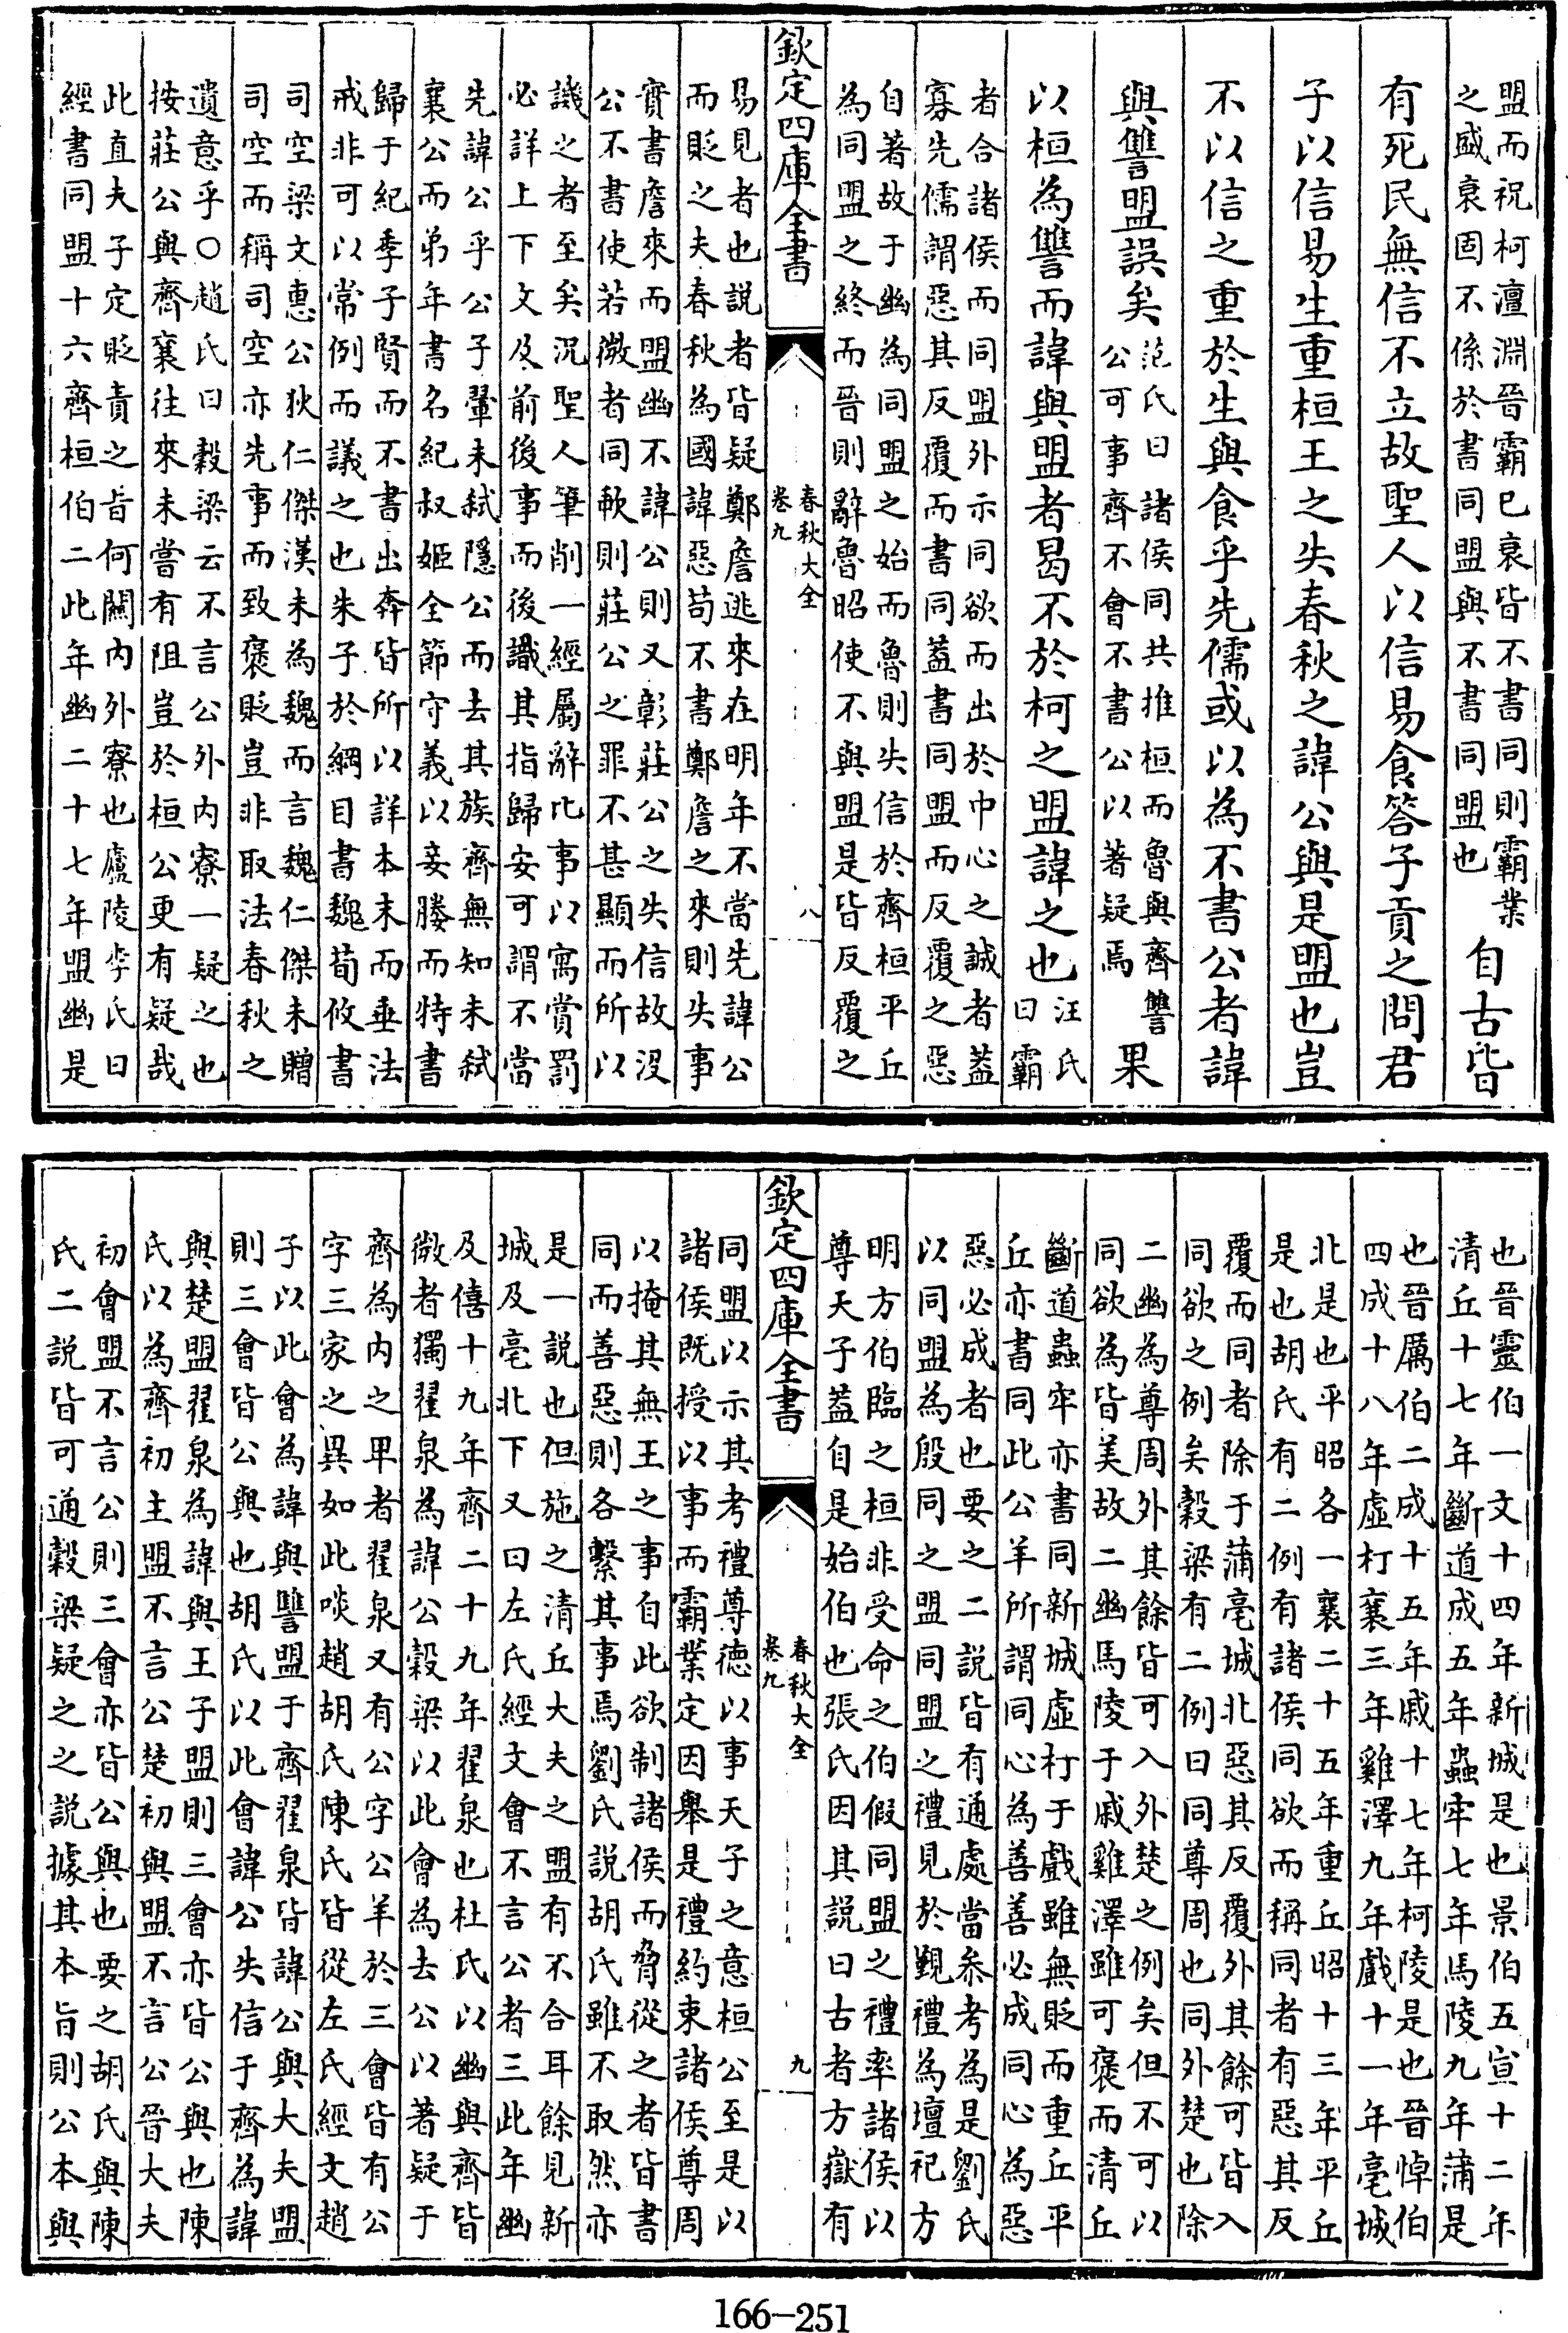 盟而祝柯澶淵晉霸已衰皆不書同則霸業
之盛衰固不係於書同盟與不書同盟也
自古皆
有死民無信不立故聖人以信易食答子貢之問君
子以信易生重桓王之失春秋之諱公與是盟也豈
不以信之重於生與食乎先儒或以為不書公者諱
與讐盟誤矣
范氏曰諸侯同共推桓而魯與齊讐
公可事齊不會不書公以著疑焉
果
以桓為讐而諱與盟者曷不於柯之盟諱之也
汪氏
曰霸
者合諸侯而同盟外示同欲而出於中心之誠者蓋
寡先儒謂惡其反覆而書同蓋書同盟而反覆之惡
自著故于幽為同盟之始而魯則失信於齊桓平丘
為同盟之終而晉則辭魯昭使不與盟是皆反覆之
欽定四庫全書
春秋大全
卷九
八
易見者也說者皆疑鄭詹逃來在明年不當先諱公
而貶之夫春秋為國諱惡苟不書鄭詹之來則失事
實書詹來而盟幽不諱公則又彰莊公之失信故沒
公不書使若微者同歃則莊公之罪不甚顯而所以
譏之者至矣況聖人筆削一經屬辭比事以寓賞罰
必詳上下文及前後事而後識其指歸安可謂不當
先諱公乎公子翬未弒隱公而去其族齊無知未弒
襄公而弟年書名紀叔姬全節守義以妾媵而特書
歸于紀季子賢而不書出奔皆所以詳本末而垂法
戒非可以常例而議之也朱子於綱目書魏荀攸書
司空梁文惠公狄仁傑漢未為魏而言魏仁傑未贈
司空而稱司空亦先事而致褒貶豈非取法春秋之
遺意乎○趙氏曰穀梁云不言公外內寮一疑之也
按莊公與齊襄往來未嘗有阻豈於桓公更有疑哉
此直夫子定貶責之旨何關內外寮也廬陵李氏曰
經書同盟十六齊桓伯二此年幽二十七年盟幽是
也晉靈伯一文十四年新城是也景伯五宣十二年
清丘十七年斷道成五年蟲牢七年馬陵九年蒲是
也晉厲伯二成十五年戚十七年柯陵是也晉悼伯
四成十八年虛朾襄三年雞澤九年戲十一年亳城
北是也平昭各一襄二十五年重丘昭十三年平丘
是也胡氏有二例有諸侯同欲而稱同者有惡其反
覆而同者除于蒲亳城北惡其反覆外其餘可皆入
同欲之例矣穀梁有二例曰同尊周也同外楚也除
二幽為尊周外其餘皆可入外楚之例矣但不可以
同欲為皆美故二幽馬陵于戚雞澤雖可褒而清丘
斷道蟲牢亦書同新城虛朾于戲雖無貶而重丘平
丘亦書同此公羊所謂同心為善善必成同心為惡
惡必成者也要之二說皆有通處當參考為是劉氏
以同盟為殷同之盟同盟之禮見於覲禮為壇祀方
明方伯臨之桓非受命之伯假同盟之禮率諸侯以
尊天子蓋自是始伯也張氏因其說曰古者方嶽有
欽定四庫全書
春秋大全
卷九
九
同盟以示其考禮尊德以事天子之意桓公至是以
諸侯既授以事而霸業定因舉是禮約束諸侯尊周
以掩其無王之事自此欲制諸侯而脅從之者皆書
同而善惡則各繫其事焉劉氏說胡氏雖不取然亦
是一說也但施之清丘大夫之盟有不合耳餘見新
城及亳北下又曰左氏經文會不言公者三此年幽
及僖十九年齊二十九年翟泉也杜氏以幽與齊皆
微者獨翟泉為諱公穀梁以此會為去公以著疑于
齊為內之卑者翟泉又有公字公羊於三會皆有公
字三家之異如此啖趙胡氏陳氏皆從左氏經文趙
子以此會為諱與讐盟于齊翟泉皆諱公與大夫盟
則三會皆公與也胡氏以此會諱公失信于齊為諱
與楚盟翟泉為諱與王子盟則三會亦皆公與也陳
氏以為齊初主盟不言公楚初與盟不言公晉大夫
初會盟不言公則三會亦皆公與也要之胡氏與陳
氏二說皆可通穀梁疑之之說據其本旨則公本與
166-251